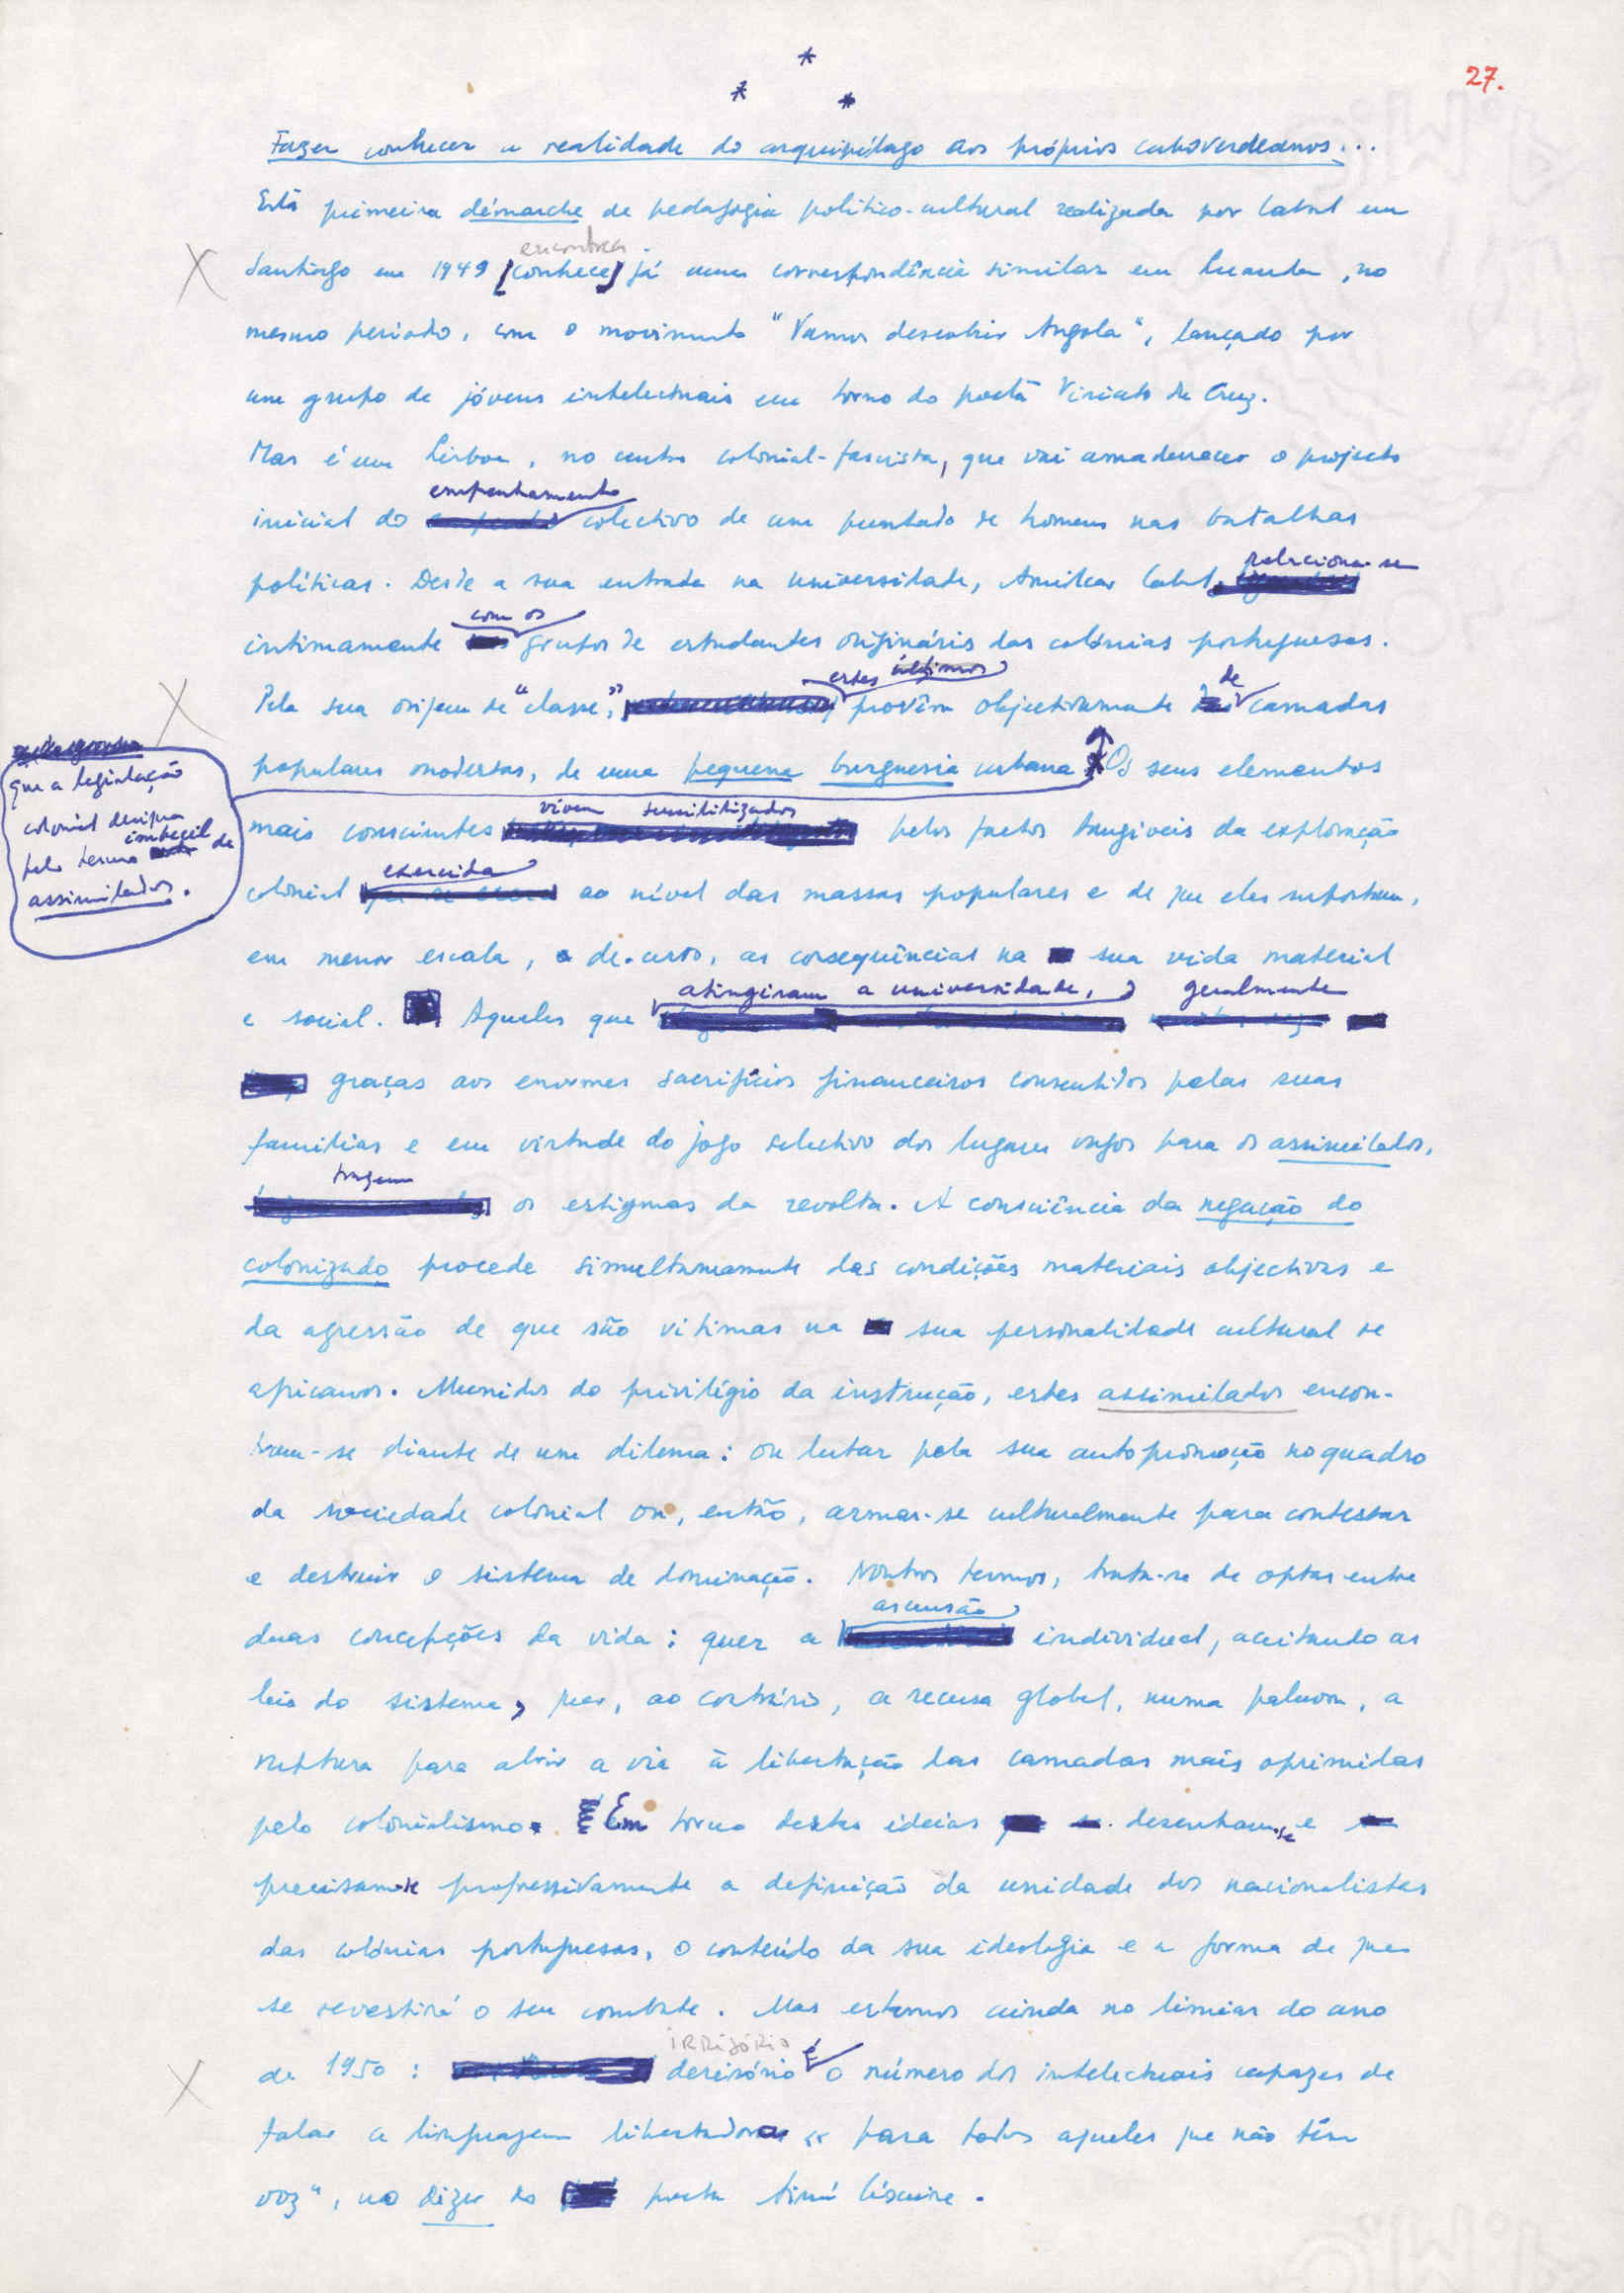 27.
*
* *
Fazer conhecer a realidade do arquipélago aos próprios caboverdeanos...
Esta primeira démarche de pedagogia politico-cultural realizada por Cabral em
encontra
Santiago em 1949 [conhece] já uma correspondência similar em Luanda, no
mesmo período, com o movimento "Vamos descobrir Angola", lançado por
um grupo de jóvens intelectuais em torno do poeta Viriato da Cruz.
Mas é em Lisboa, no centro colonial-fascista, que vai amadurecer o projecto
empenhamento
inicial do colectivo de um punhado de homens nas batalhas
relaciona-se
políticas. Desde a sua entrada na universidade, Amílcar Cabral
com os
intimamente grupos de estudantes originários das colónias portuguesas.
estes últimos de
Pela sua origem de "classe", provêm objectivamente camadas
populares modestas, de uma pequena burguesia urbana Os seus elementos
que a legislação
colonial designa
pelo termo imbecil de
assimilados.
vivem sensibilizados
mais conscientes pelos factos tangíveis da exploração
exercida
colonial ao nível das massas populares e de que eles suportam,
em menor escala, de certo, as consequências na sua vida material
atingiram a universidade, geralmente
e social. Aqueles que
graças aos enormes sacrifícios financeiros consentidos pelas suas
famílias e em virtude do jogo selectivo dos lugares vagos para os assimilados,
trazem
os estigmas da revolta. A consciência da negação do
colonizado procede simultaneamente das condições materiais objectivas e
da agressão de que são vítimas na sua personalidade cultural de
africanos. Munidos do privilégio da instrução, estes assimilados encon-
tram-se diante de um dilema: ou lutar pela sua autopromoção no quadro
da sociedade colonial ou, então, armar-se culturalmente para contestar
e destruir o sistema de dominação. Noutros termos, trata-se de optar entre
ascensão
duas concepções da vida: quer a individual, aceitando as
leis do sistema, quer, ao contrário, a recusa global, numa palavra, a
ruptura para abrir a via à libertação das camadas mais oprimidas
pelo colonialismo. Em torno destas ideias desenham-se e
precisam-se progressivamente a definição da unidade dos nacionalistas
das colónias portuguesas, o conteúdo da sua ideologia e a forma de que
se revestirá o seu combate. Mas estamos ainda no limiar do ano
IRRISÓRIO
de 1950: derisório é o número dos intelectuais capazes de
falar a linguagem libertadora "para todos aqueles que não têm
voz", no dizer do poeta Aimé Césaire.